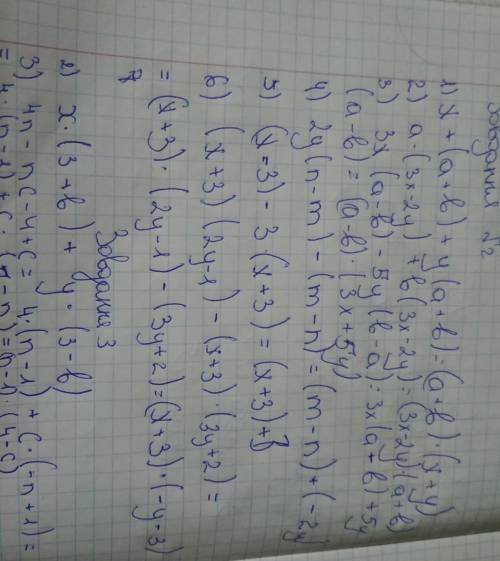 Завдання №2
1) x + (a + b) + y (a + b) = (a + b) · (x + y)
2) a · (3x - 2y) + b (3x - 2y) = (3x - 2y) · (a + b)
3) 3x (a - b) - 5y (b - a) = 3x (a + b) + 5y
(a - b) = (a - b) · (3x + 5y)
4) 2y (n - m) - (m - n) = (m - n) + (-2y)
5) (x = 3) - 3 · (x + 3) = (x + 3) +
6) (x + 3) (2y - 1) - (x + 3) · (3y + 2) =
= (x + 3) · (2y - 1) - (3y + 2) = (x + 3) · (-y - 3)
Завдання 3
2) x · (3 + b) + y · (3 - b)
3) 4n - nc - 4 + c = 4 · (n - 1) + c · (-n + 1) =
= 4 · (n - 1) + c · (1 - n) = (n - 1) · (4 - c)